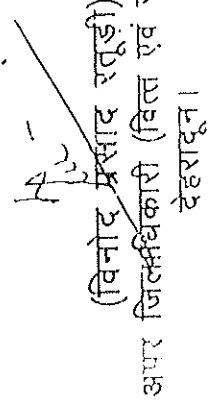 (विनोद प्रसाद रतूड़ी)
अपर जिलाधिकारी (वित्त एवं
देहरादून।